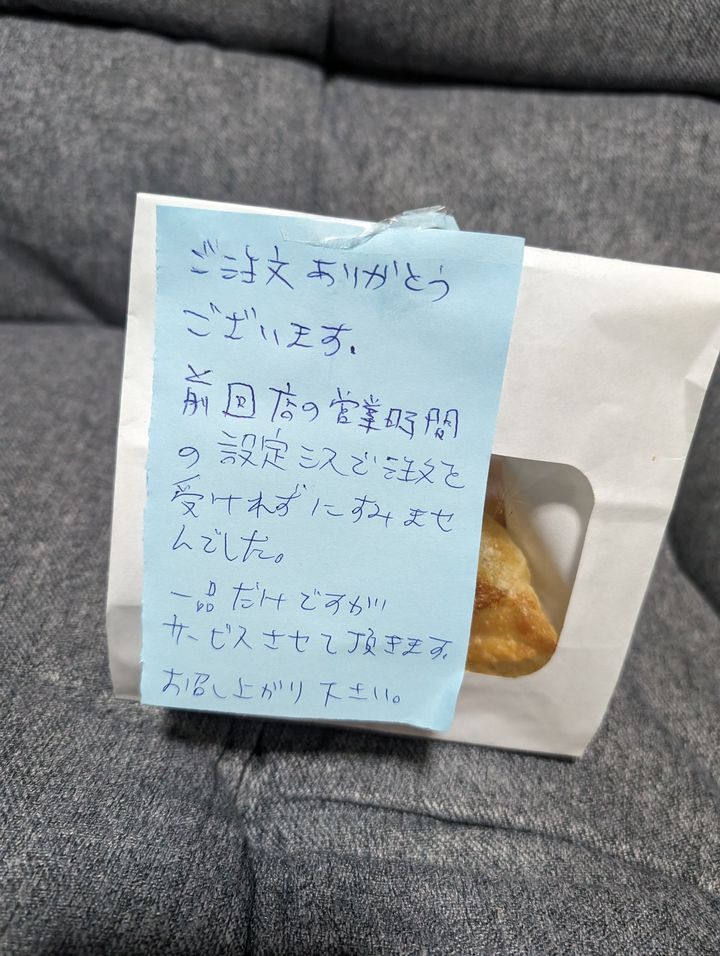 ご注文ありがとう
ございます。
前回店の営業時間
の設定ミスで注文を
受けれずにすみませ
んでした。
一品だけですが
サービスさせて頂きます。
お召し上がり下さい。